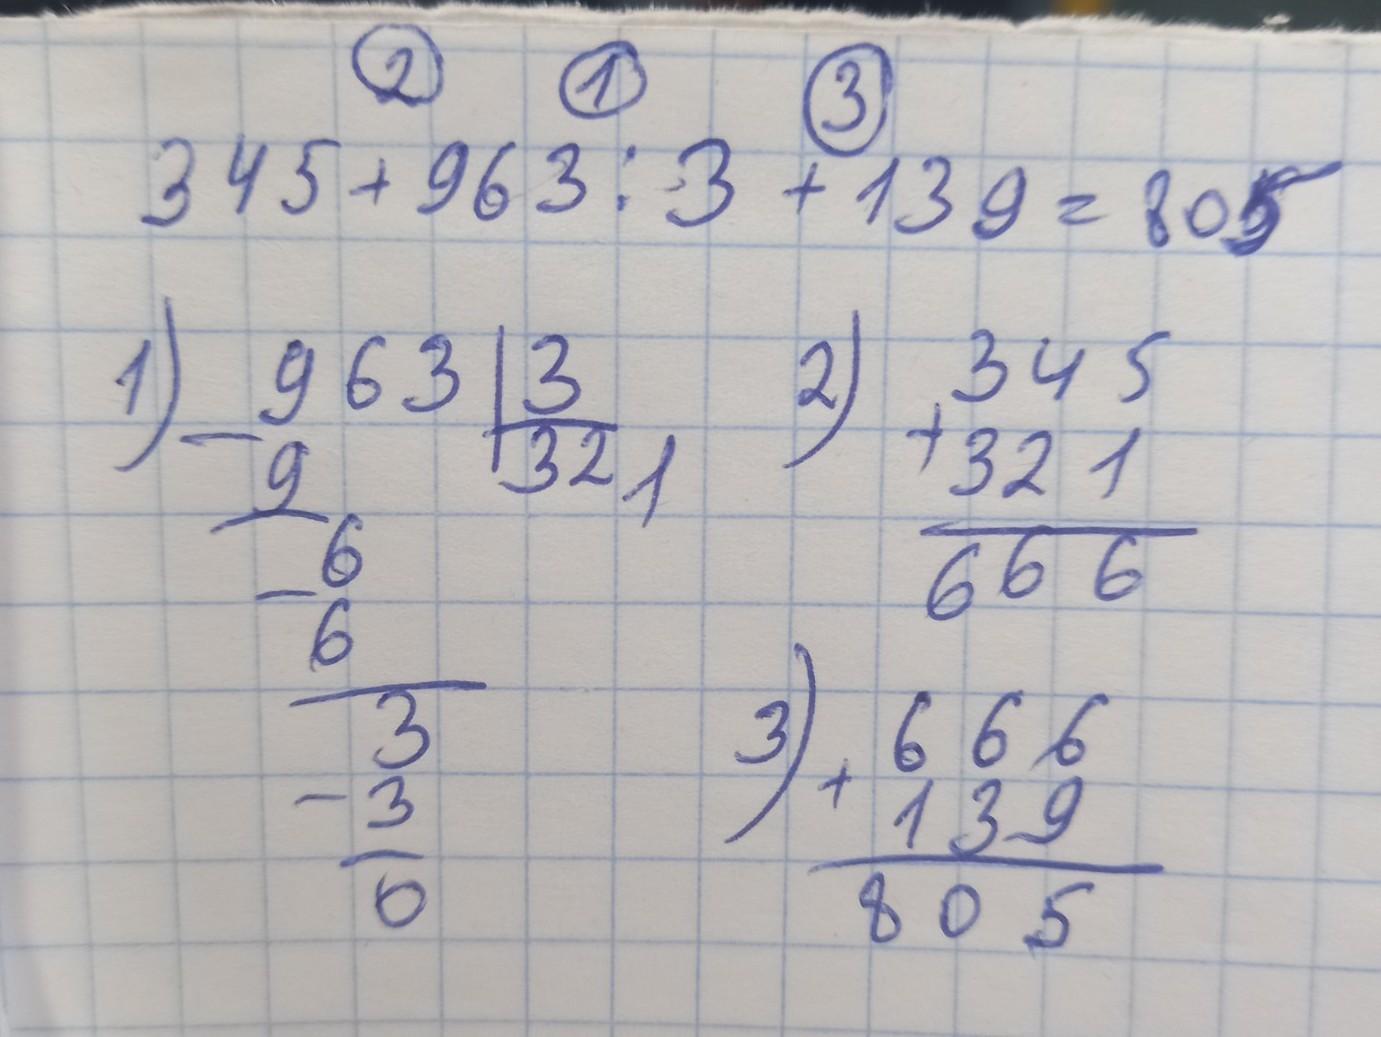 2 1 3
345+963:3+139=805
1) 963 3 2) 345
- 9 321 + 321
6 666
- 6
3 3) 666
- 3 + 139
0 805